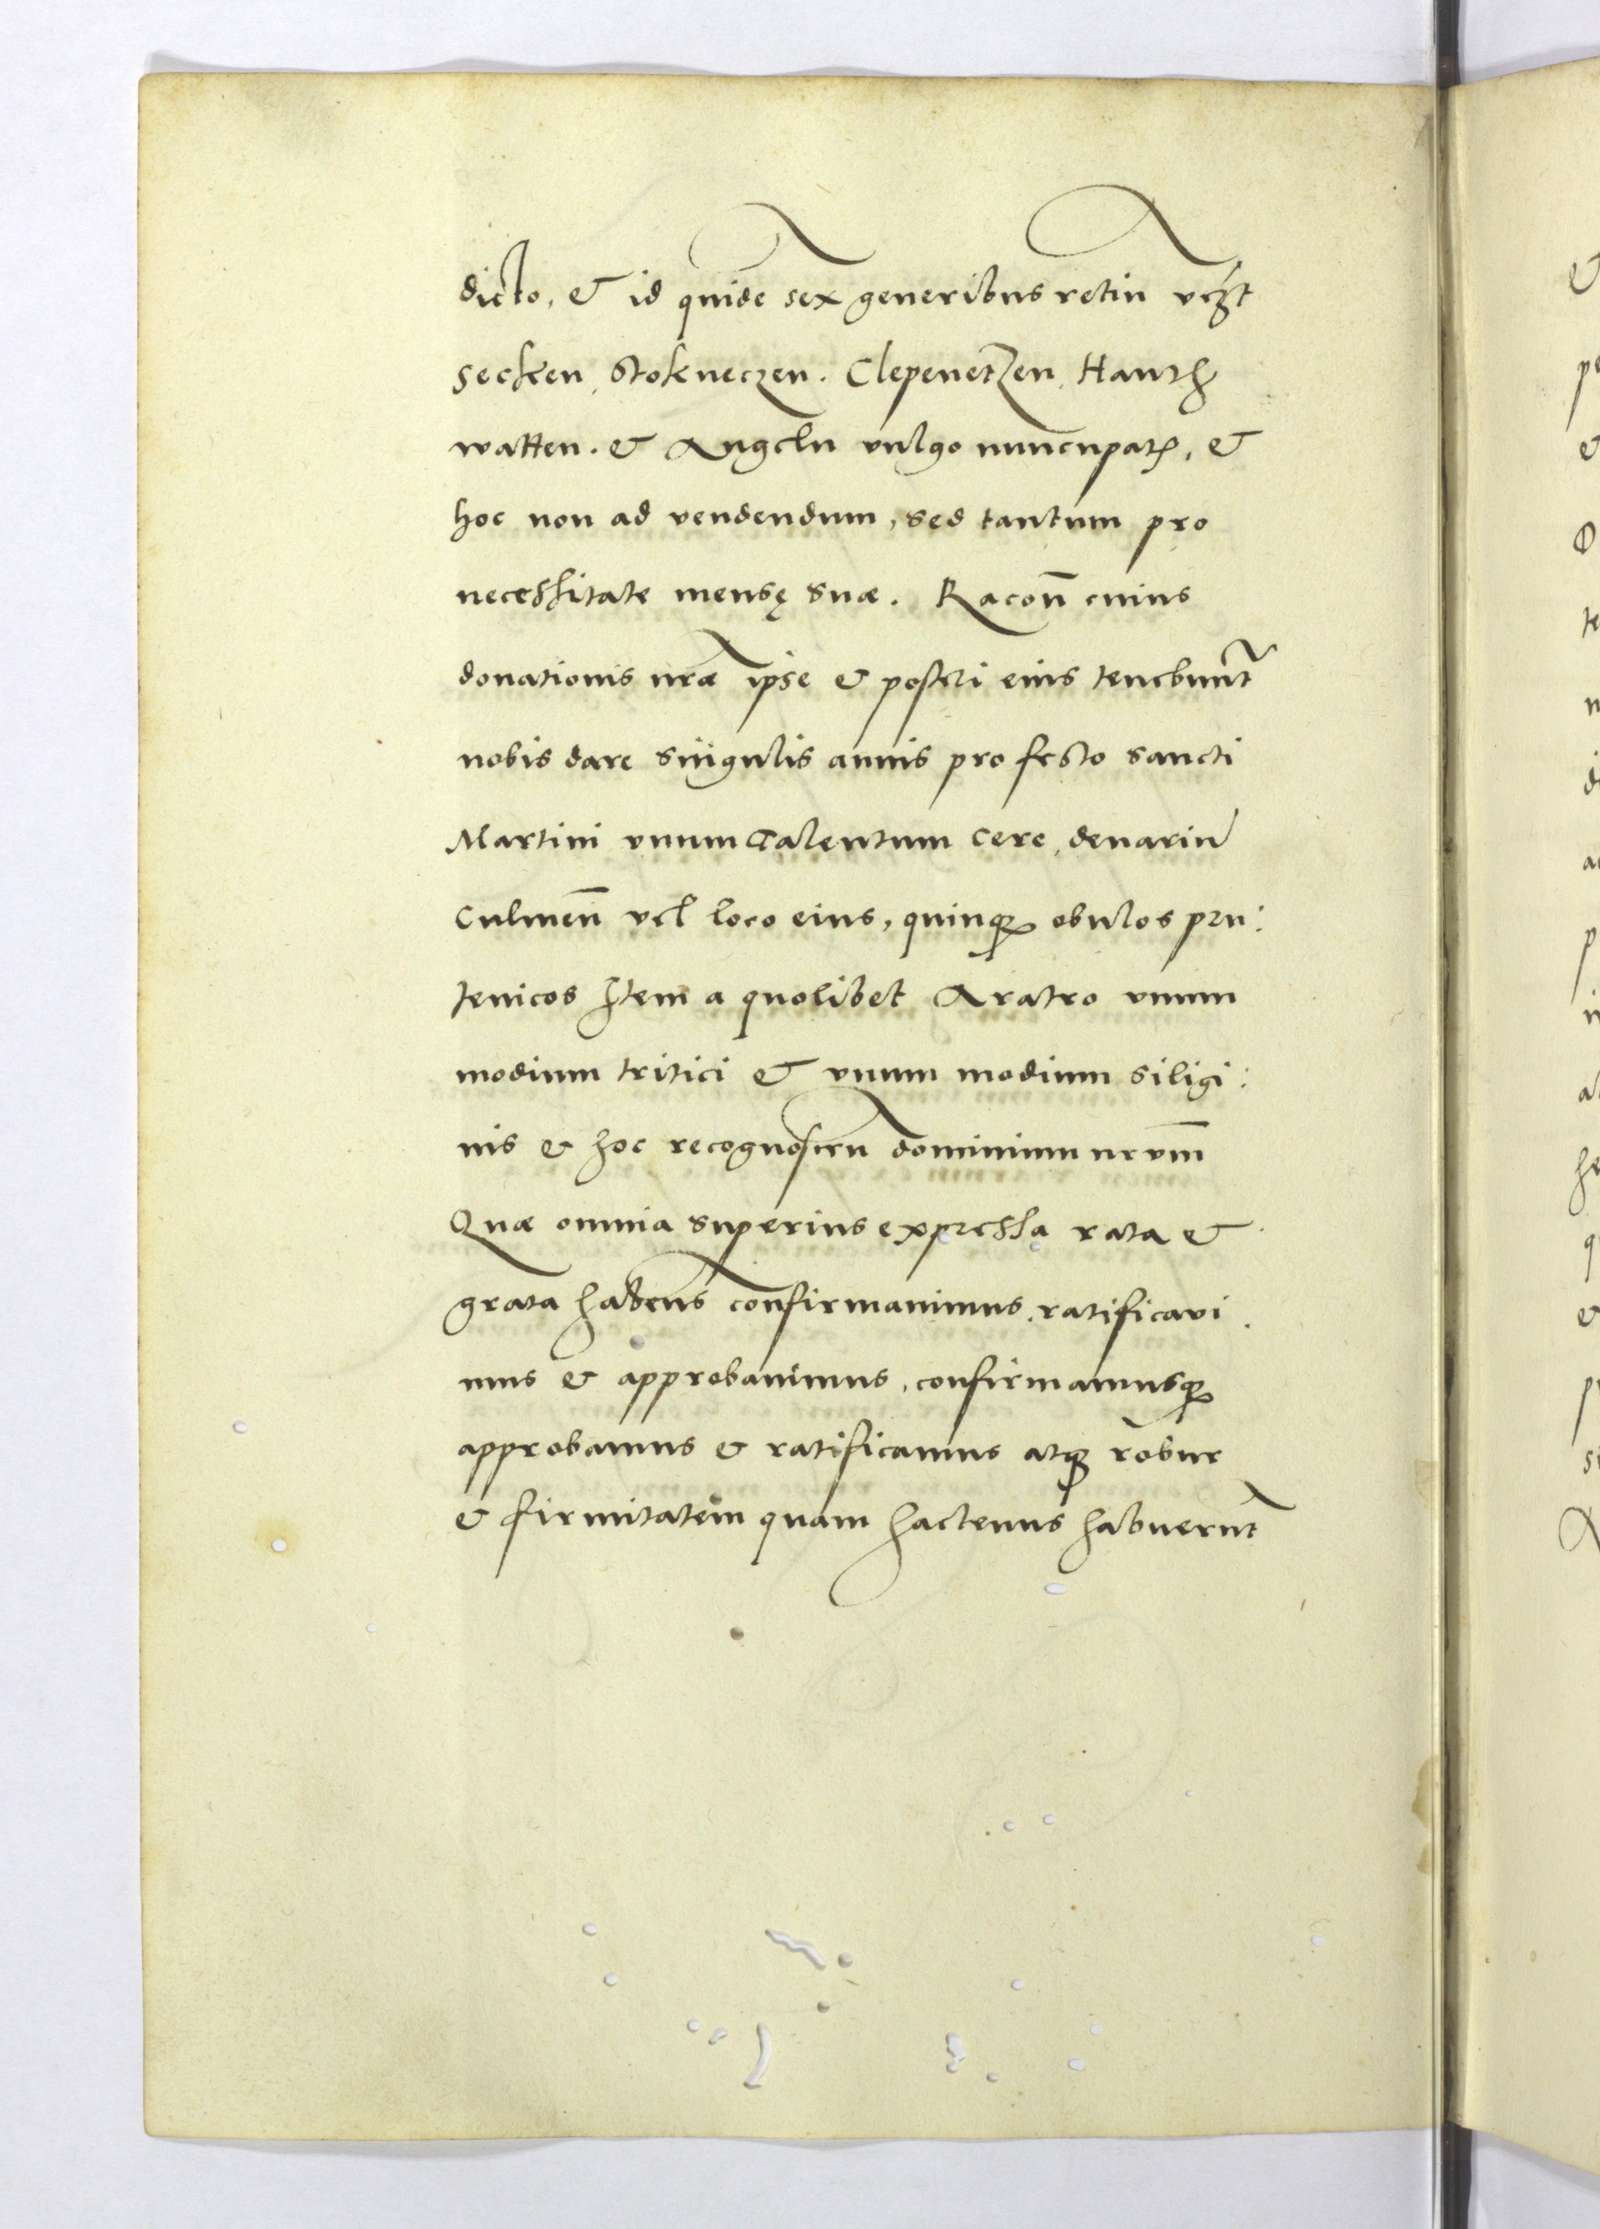 dicto, & id quidē sex generibus retiū vczt
secken, Stokneczen. Clepenetzen, Hantz
watten. & Angeln vulgo nuncupatꝭ, &
hoc non ad vendendum, sed tantum pro
necessitate mensę suæ. Racōn cuius
donationis nr̄æ ipse & posteri eius tenebunt̄
nobis dare singulis annis pro festo sancti
Martini vnum Talentum cere, denariū
Culmen̄ vel loco eius, quinqꝫ obulos pru:
tenicos Item a quolibet Aratro vnum
modium tritici & vnum modium siligi:
nis & hoc recognosceñ dominium nrūm
Quæ omnia superius expressa rata &
grata habeñs confirmauimus, ratificaui
mus & approbauimus, confirmamusqꝫ
approbamus & ratificamus atqꝫ robur
& firmitatem quam hactenus habuerunt̄